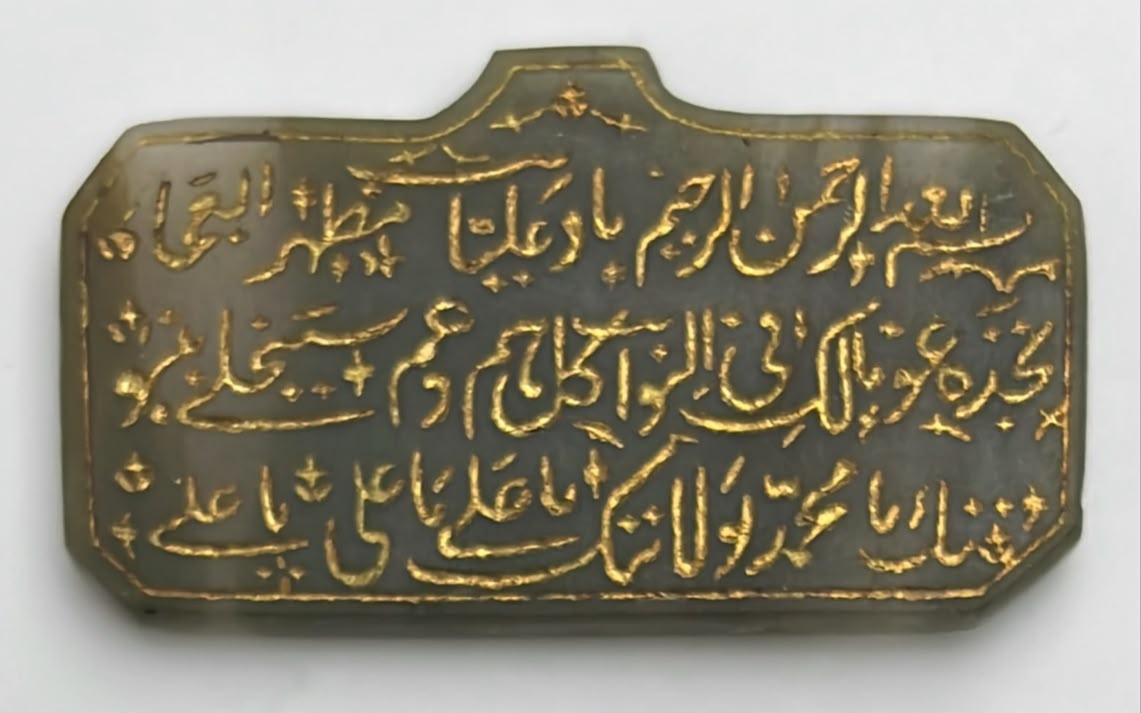 بسم الله الرحمن الرحيم ناد عليا مظهر العجا
تجده عونا لك فى النوائب كل هم وغم سينجلى بنبو
تك يا محمد بولايتك يا على يا على يا على